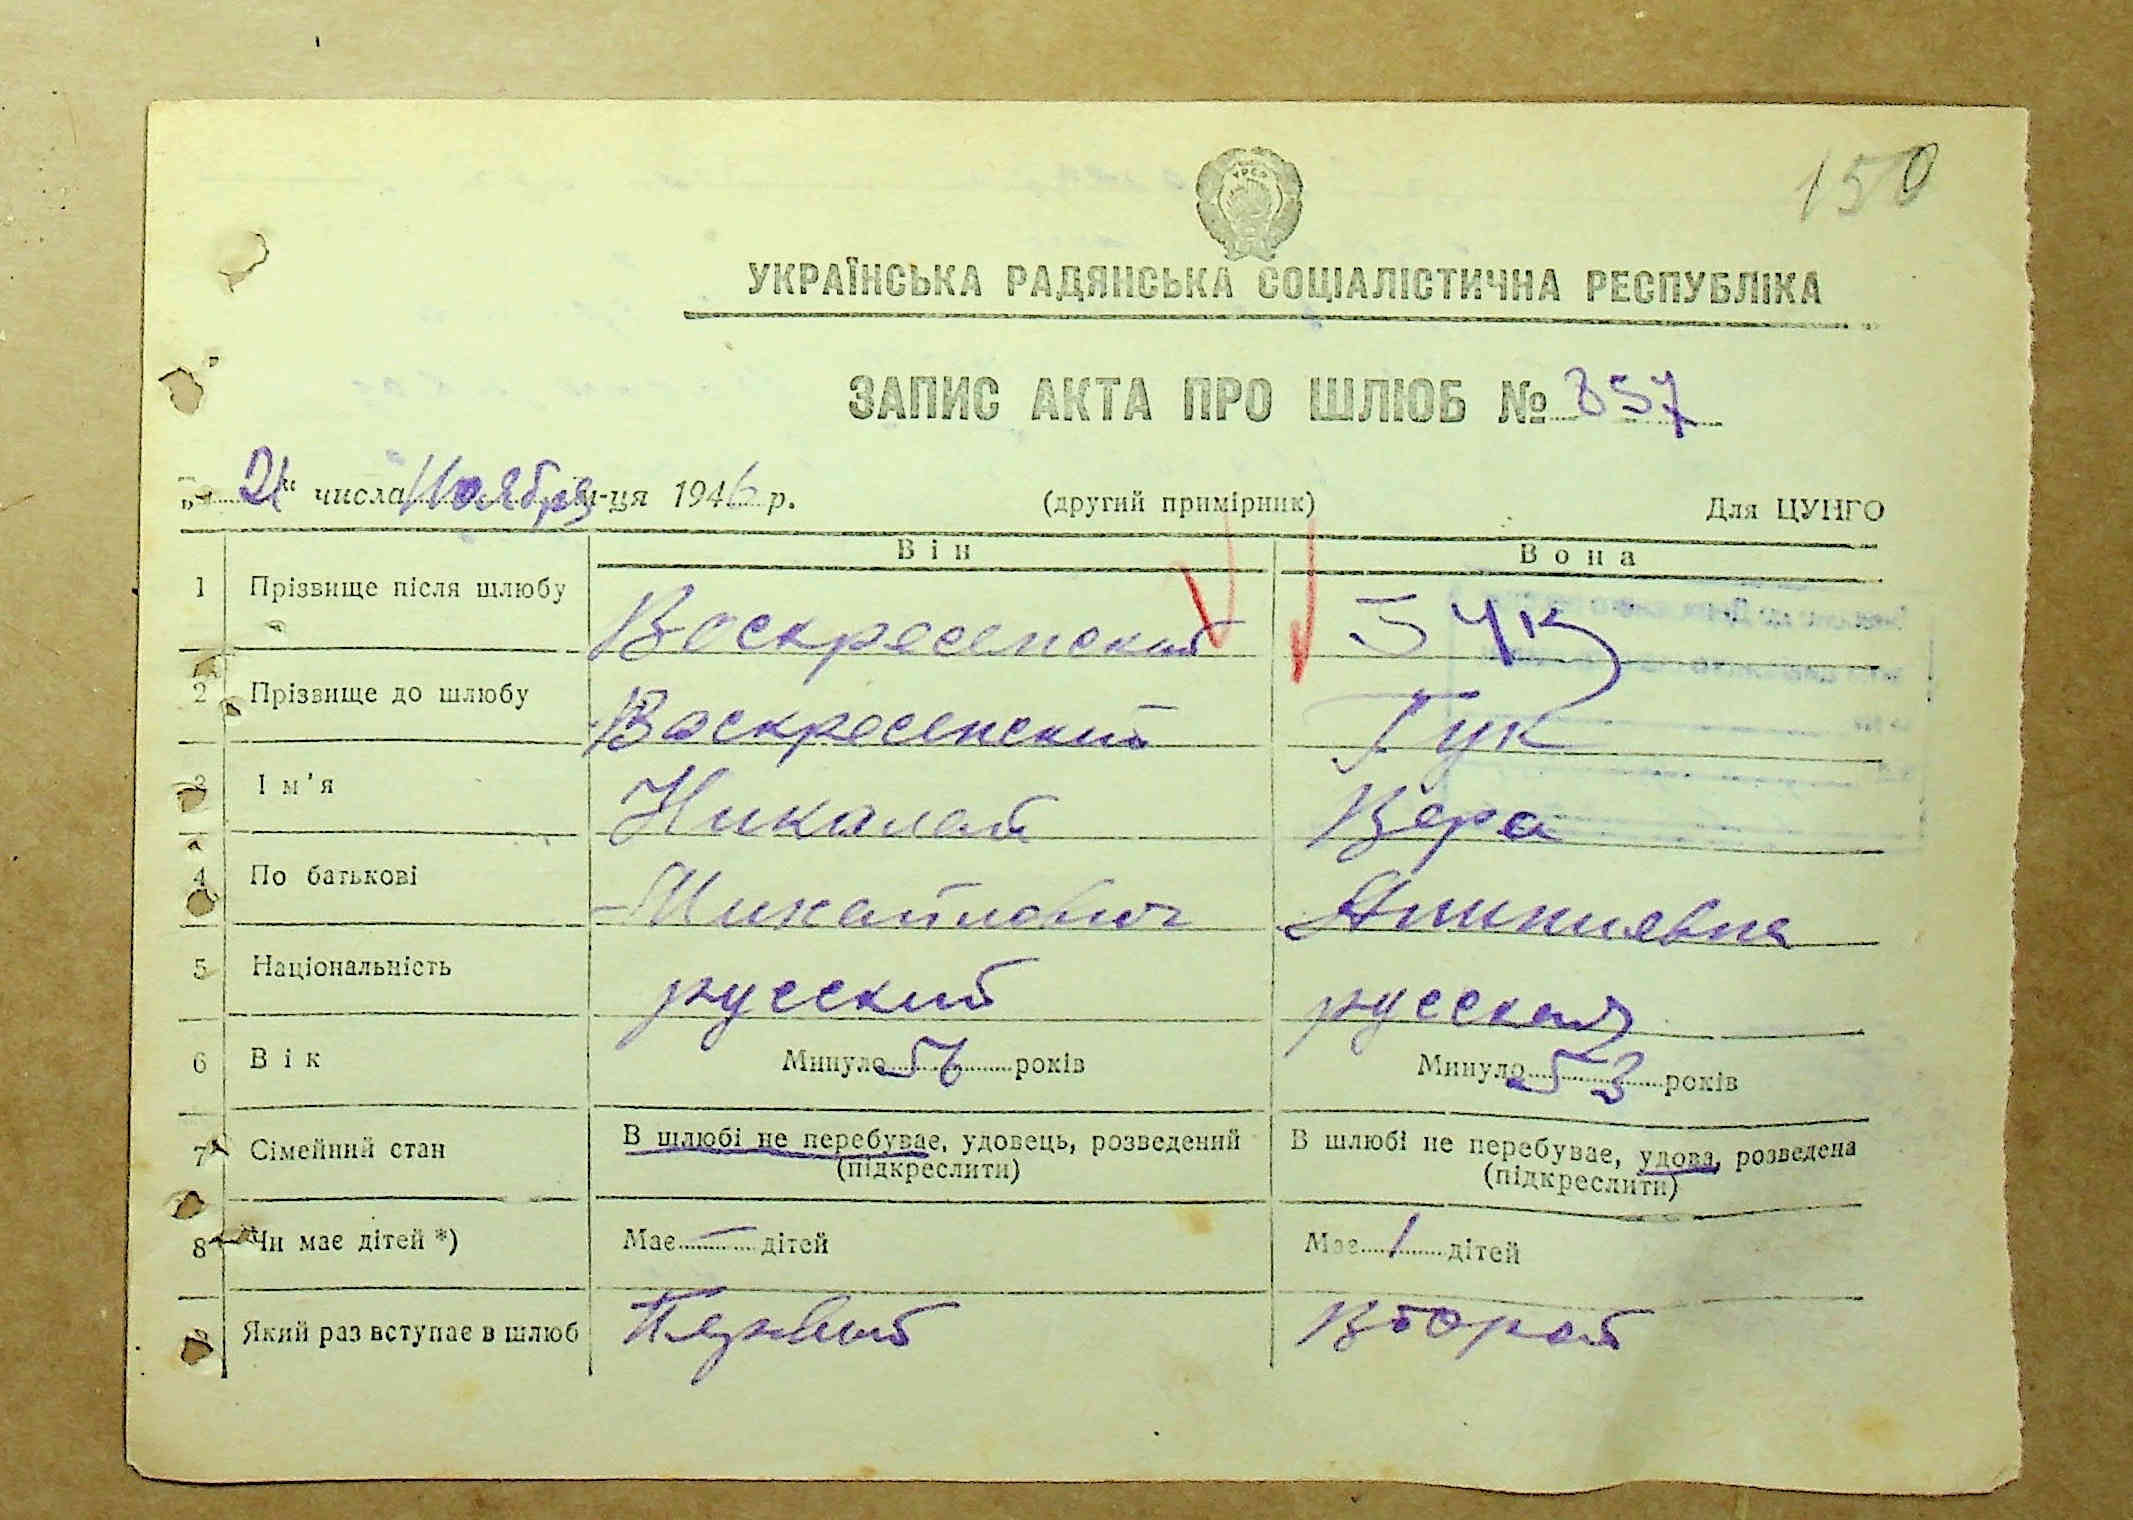 150
УРСР
УКРАЇНСЬКА РАДЯНСЬКА СОЦІАЛІСТИЧНА РЕСПУБЛІКА
ЗАПИС АКТА ПРО ШЛЮБ № 857
„21“ числа Ноября м-ця 1946 р. (другий примірник) Для ЦУНГО
Він Вона
1 Прізвище після шлюбу Воскресенский Гук
2 Прізвище до шлюбу Воскресенский Гук
3 Ім'я Николай Вера
4 По батькові Михайлович
5 Національність русский русская
6 Вік Минуло 56 років Минуло 53 років
7 Сімейний стан В шлюбі не перебуває, удовець, розведений В шлюбі не перебуває, удова, розведена
(підкреслити) (підкреслити)
8 Чи має дітей *) Має — дітей Має 1 дітей
9 Який раз вступає в шлюб Первый Второй